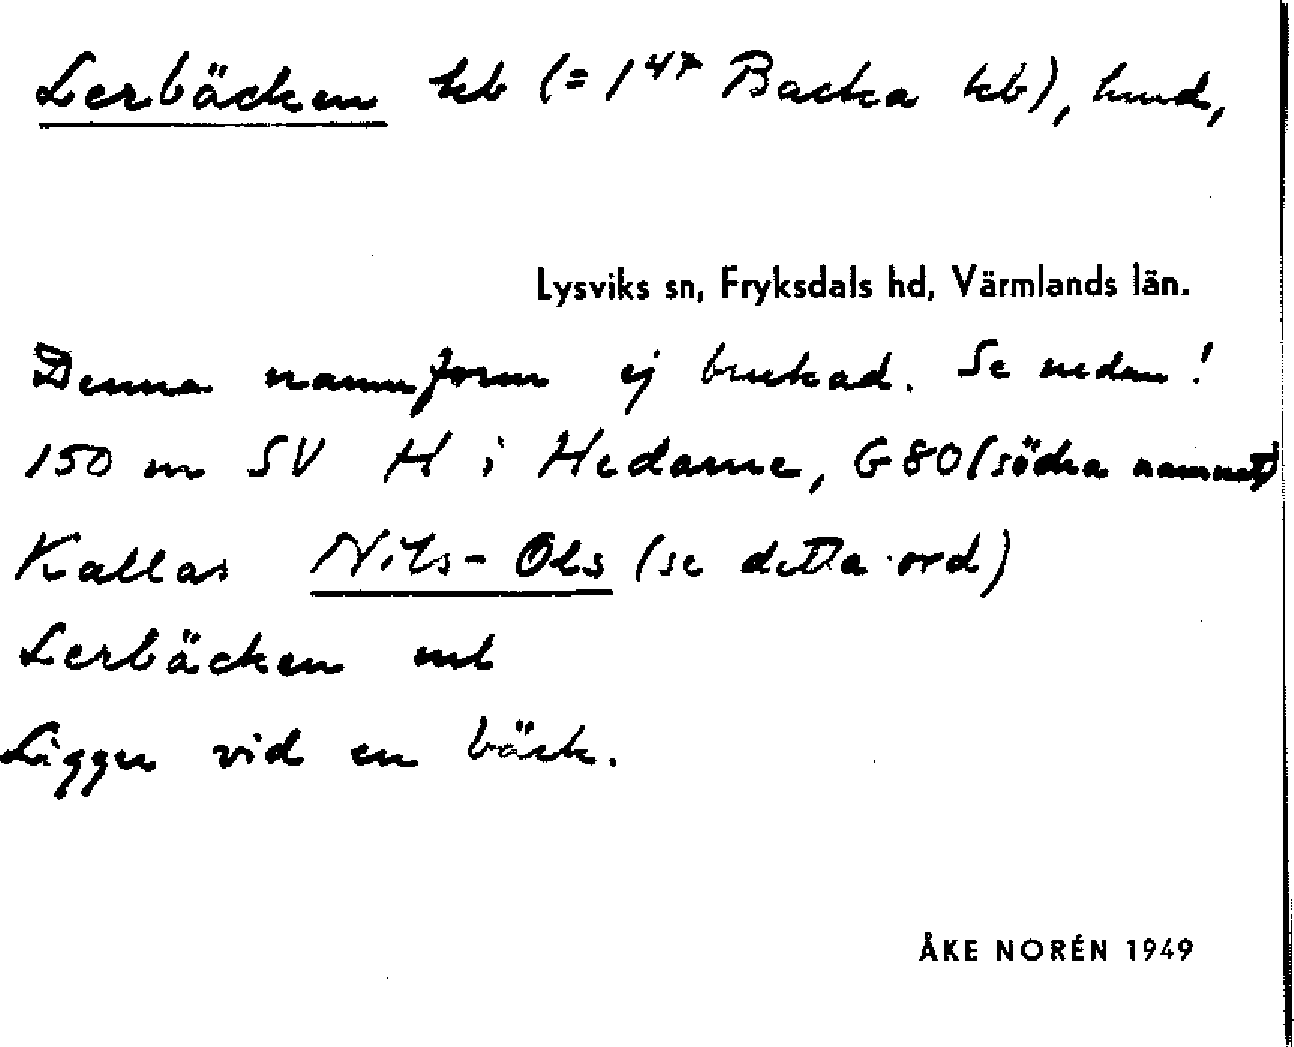 Lerbäcken kb (= 1⁴⁷ Backa kb), hmd,
Lysviks sn, Fryksdals hd, Värmlands län.
Denna namnform ej brukad. Se nedan!
150 m SV H i Hedarne, G80 (södra namnet)
Kallas Nils-Ols (se detta ord)
Lerbäcken
Ligger vid en bäck.
ÅKE NORÉN 1949